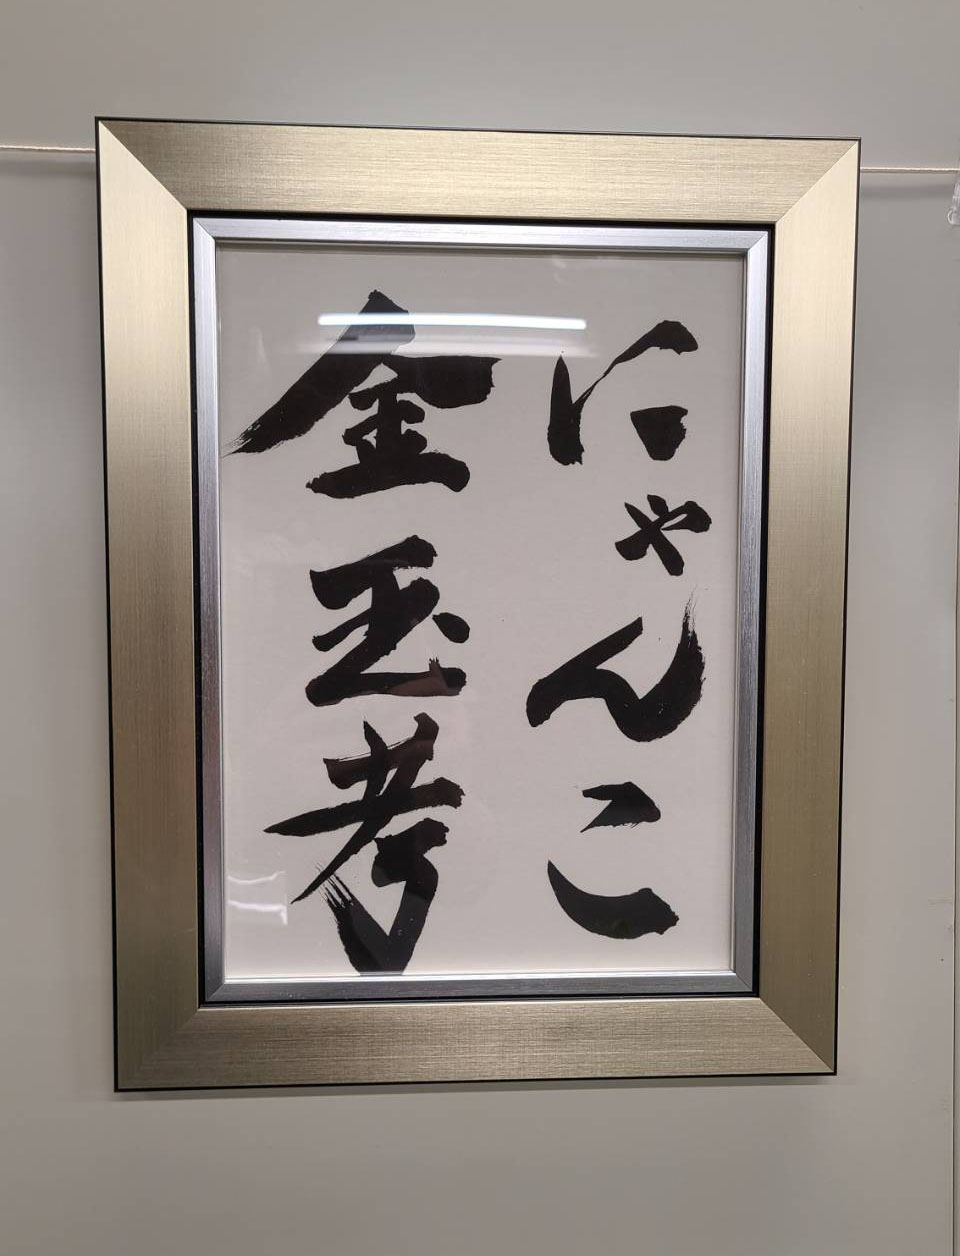 にゃんこ
金玉考